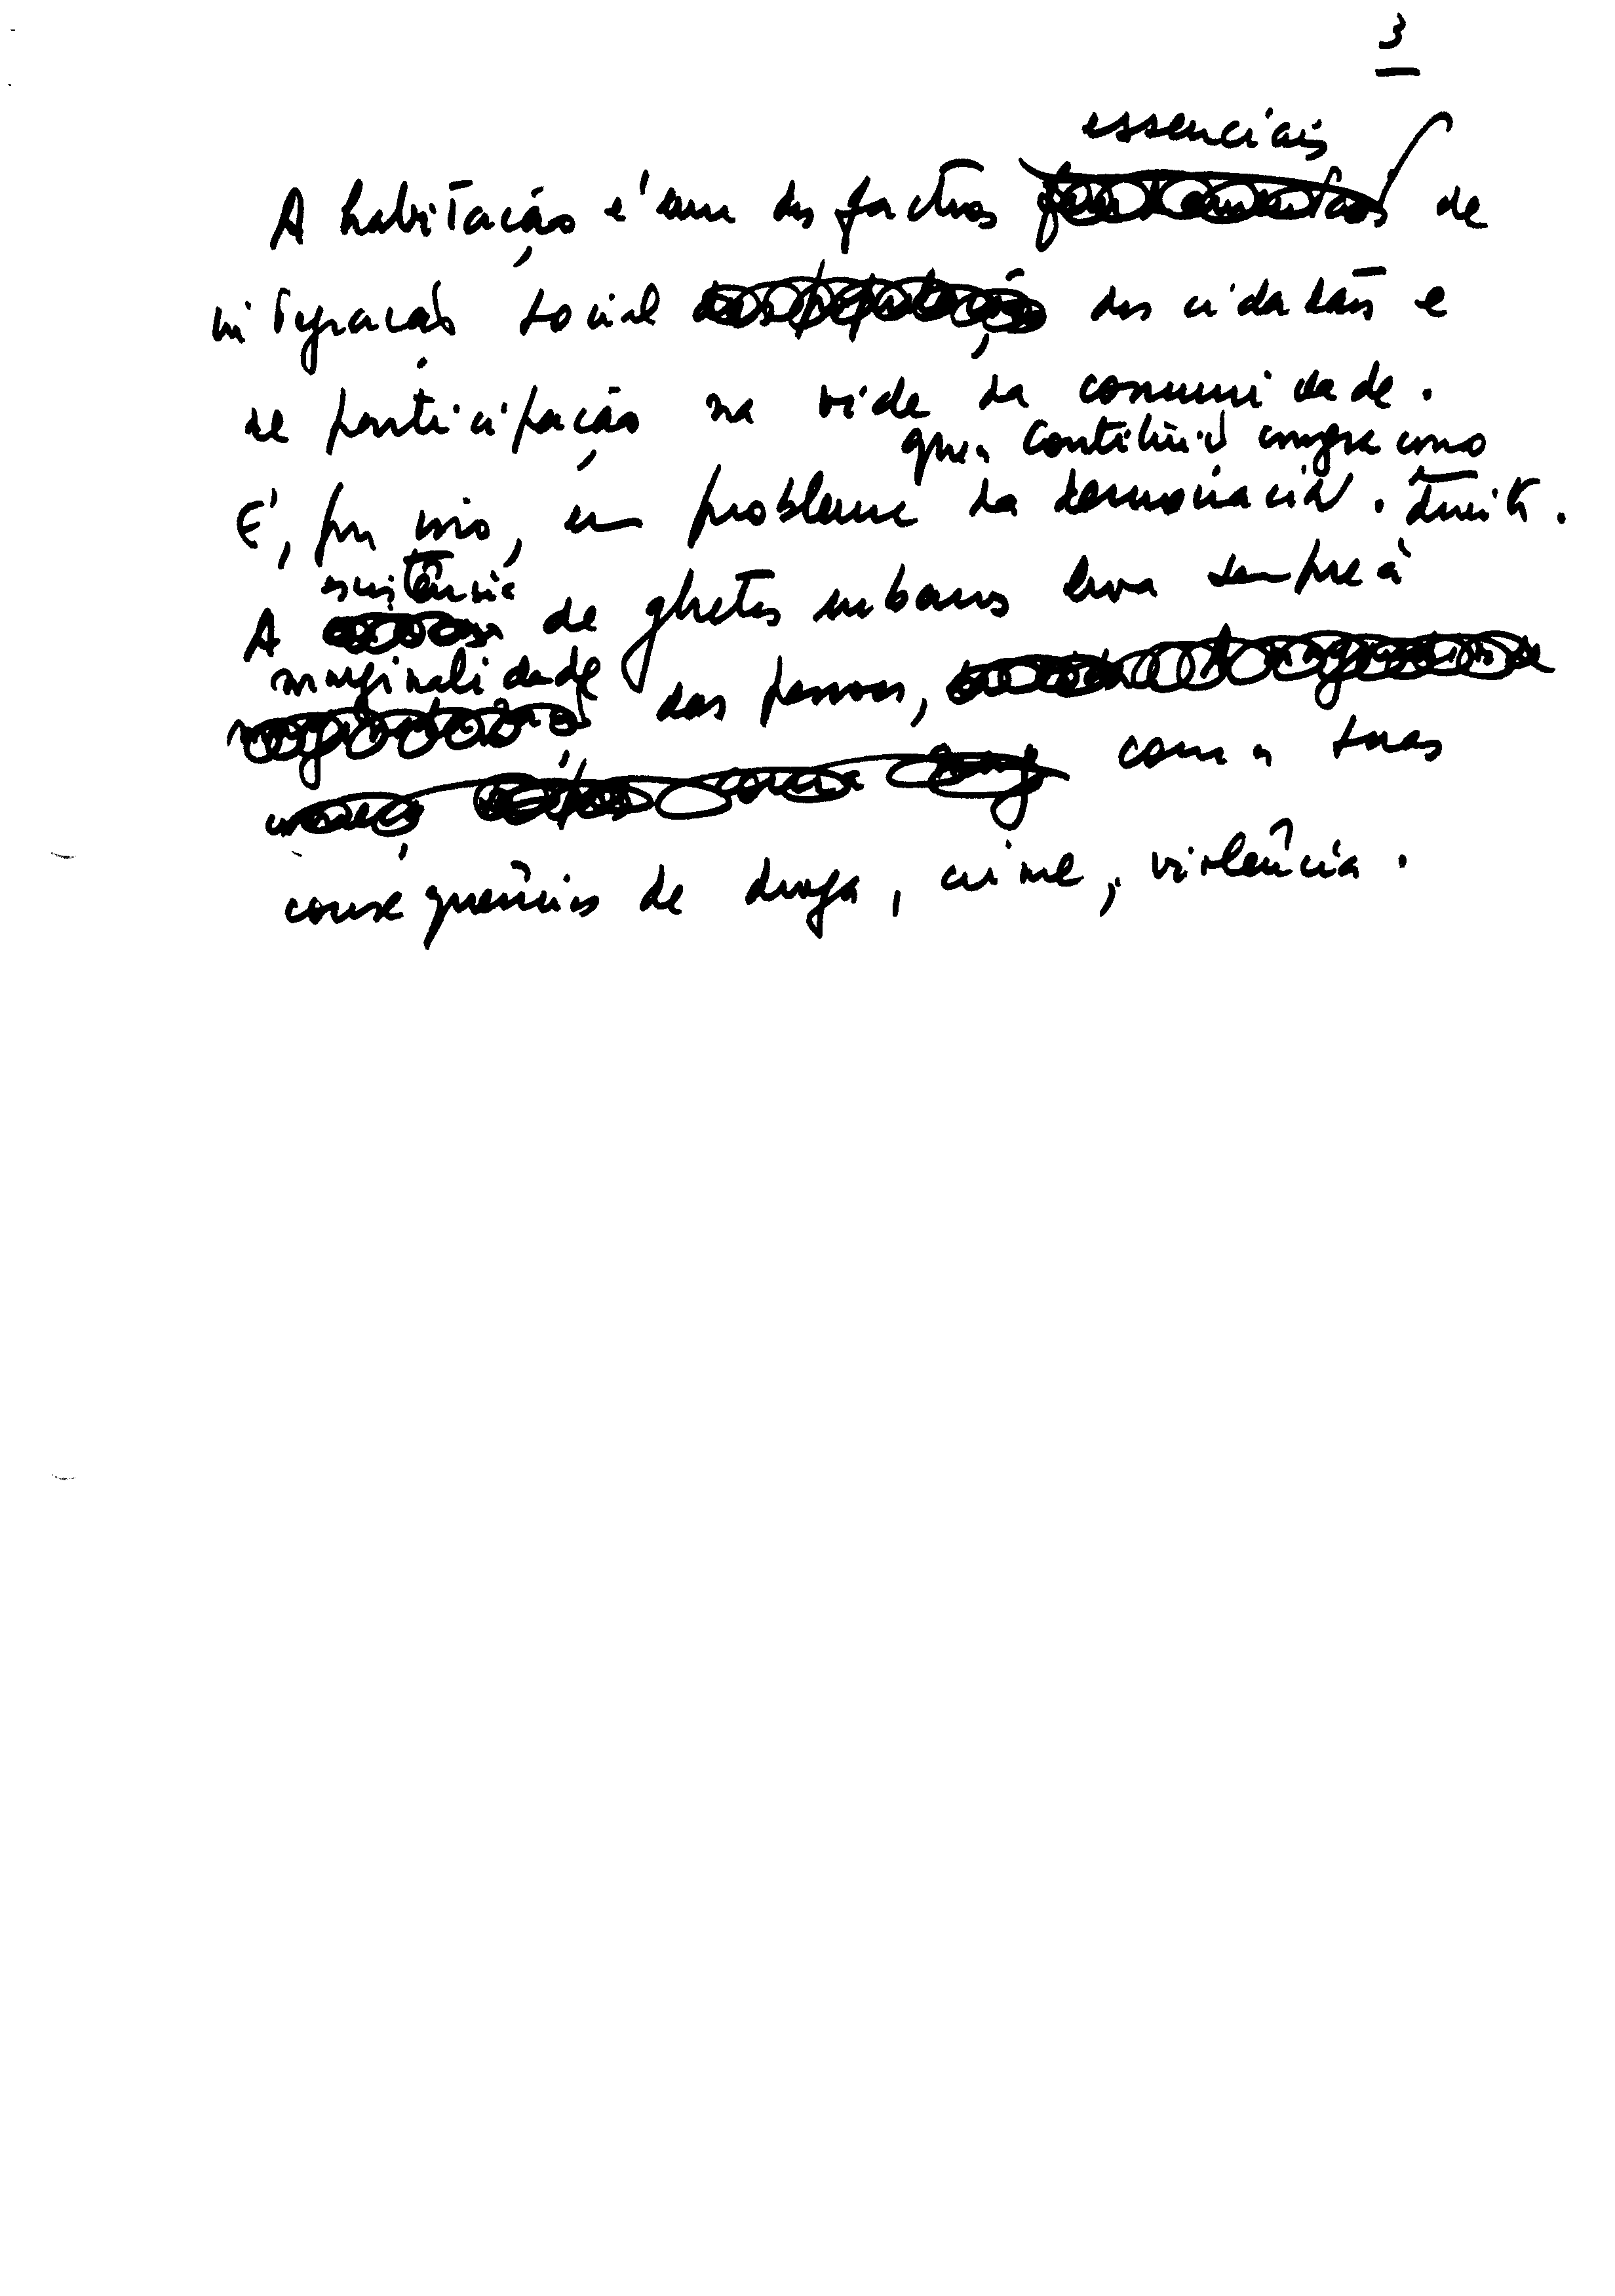 3
essenciais
A habitação é um dos factores de
integração social dos cidadãos e
de participação na vida da comunidade.
que a Constituição consagra como
É, por isso, um problema da democracia. direito.
existência
A de ghetos urbanos leva sempre à
marginalidade
das pessoas,
com as suas
consequências de droga, crime, violência.